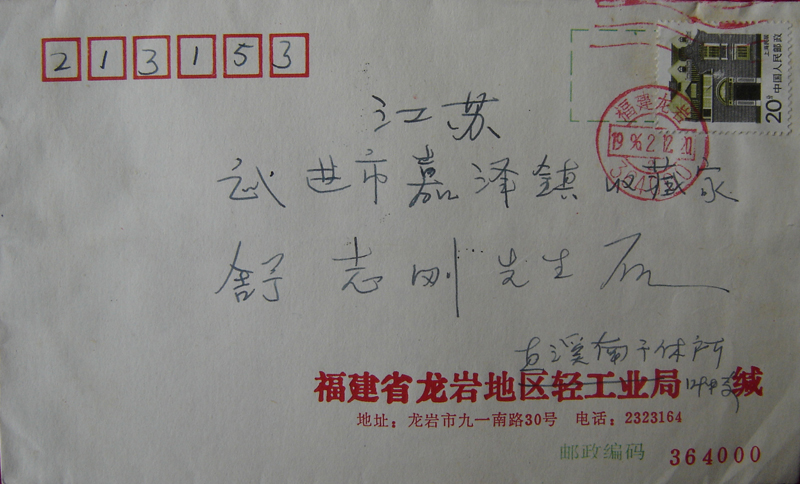 213153
20分 中国人民邮政
上海民居
福建龙岩
1996.2.12.20
江苏
武进市嘉泽镇收藏家
舒志刚先生
溪南干休所
福建省龙岩地区轻工业局 缄
地址：龙岩市九一南路30号 电话：2323164
邮政编码 364000